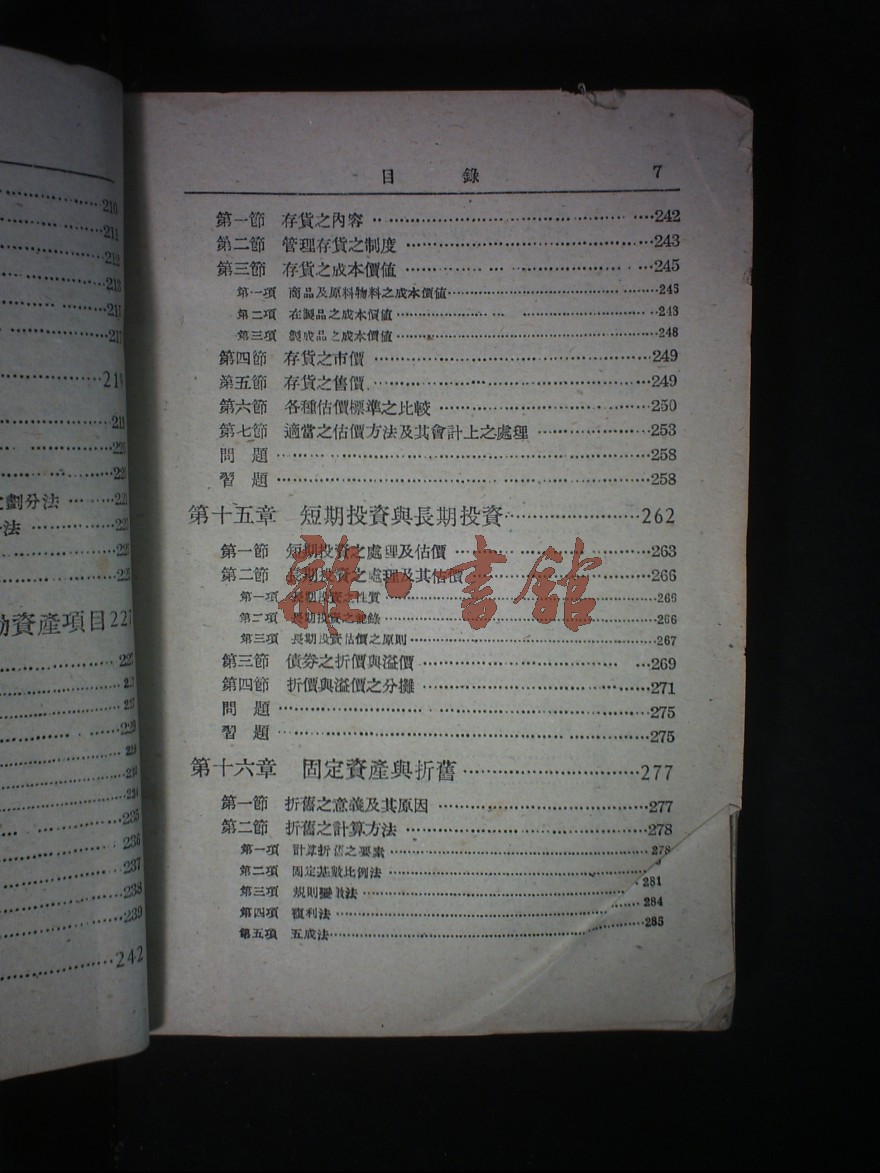 210
211
212
213
217
217
219
219
220
220
劃分法 221
法 221
資產項目 227
235
236
237
238
239
242
目 錄 7
第一節 存貨之內容 242
第二節 管理存貨之制度 243
第三節 存貨之成本價值 245
第一項 商品及原料物料之成本價值
第二項 在製品之成本價值
第三項 製成品之成本價值 248
第四節 存貨之市價 249
第五節 存貨之售價 249
第六節 各種估價標準之比較 250
第七節 適當之估價方法及其會計上之處理 253
問 題 258
習 題 258
第十五章 短期投資與長期投資 262
第一節 短期投資之處理及估價 263
第二節 長期投資之處理及其估價 266
第一項 長期投資之性質 266
第二項 長期投資之記錄 266
第三項 長期投資估價之原則 267
第三節 債券之折價與溢價 269
第四節 折價與溢價之分攤 271
問 題 275
習 題 275
第十六章 固定資產與折舊 277
第一節 折舊之意義及其原因 277
第二節 折舊之計算方法 278
第一項 計算折舊之要素 278
第二項 固定基數比例法
第三項 規則變數法 281
第四項 複利法 284
第五項 五成法 285
雜·書館